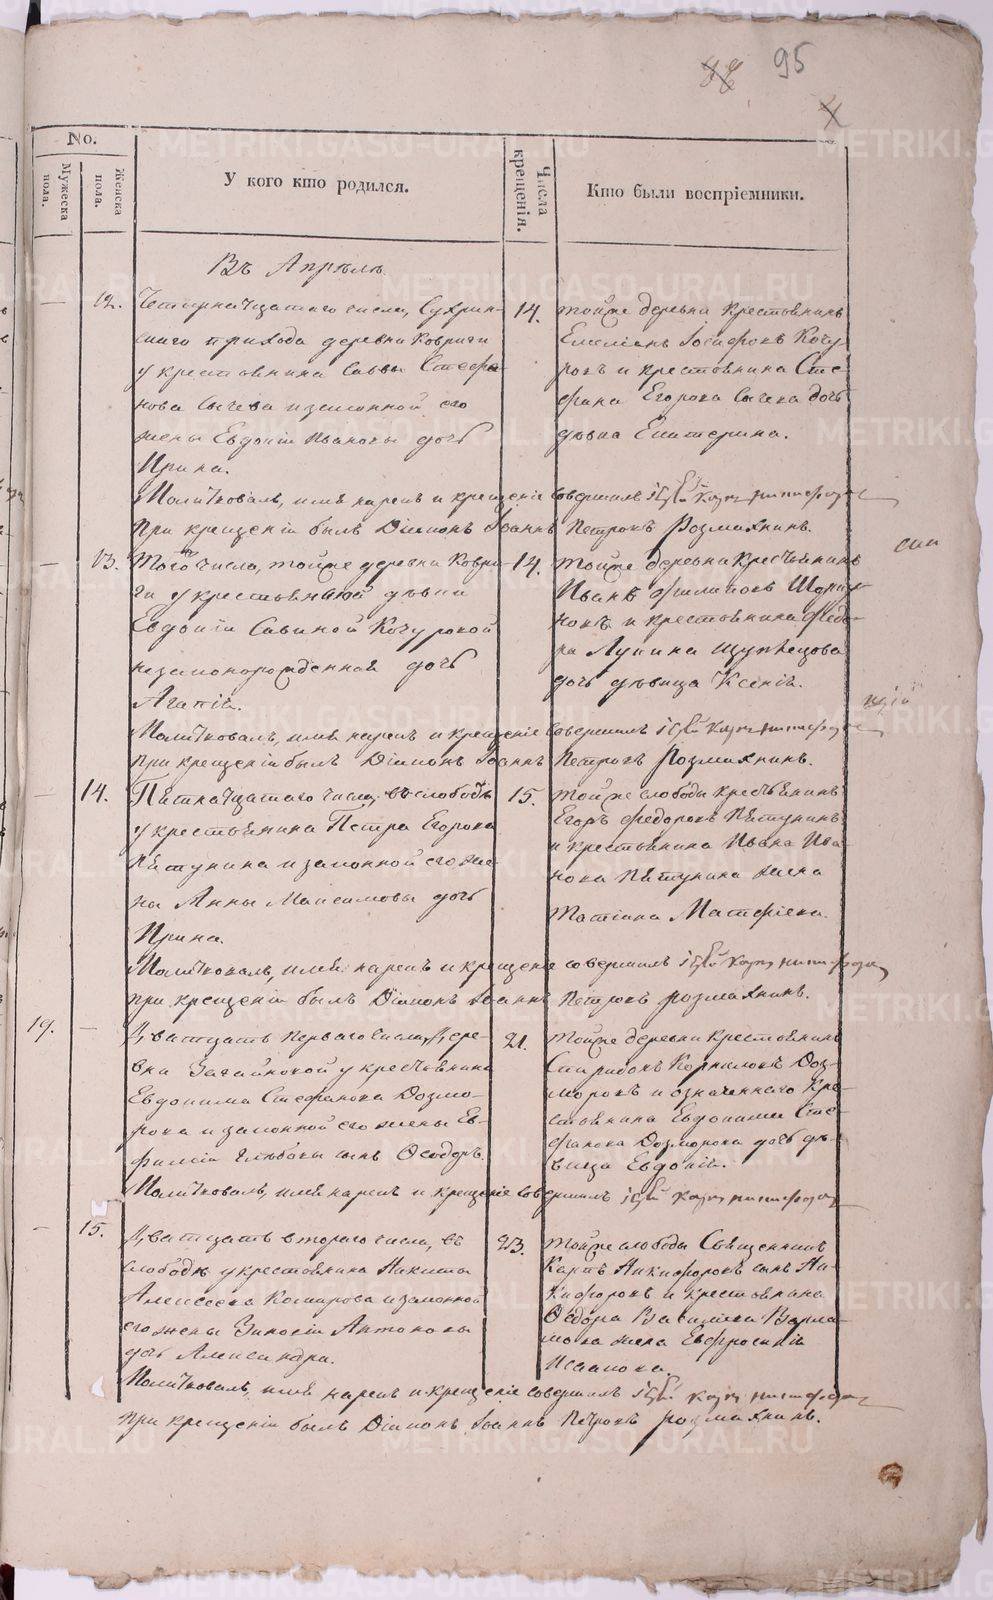 95
No.
Мужеска пола.
Женска пола.
У кого кто родился.
Числа крещенія.
Кто были воспріемники.
Въ Апрѣлѣ.
12. Четырнатцатаго числа, Сухрин-
скаго прихода деревни Ковриги
у крестьянина Саввы Стефа-
нова Сычева и законной его
жены Евдокіи Ивановы дочь
Ирина.
14. тойже деревни крестьянинъ
Емеліянъ Іосифовъ Кочу
ровъ и крестьянина Сте
фана Егорова Сычева дочь
дѣвка Екатерина.
Молитвовалъ, имя нарекъ и крещеніе совершилъ
при крещеніи былъ Діаконъ Іоаннъ Петровъ Розмахнинъ.
13. Того числа, тойже деревни Коври-
ги у крестьянской дѣвки
Евдокіи Савиной Кочуровой
незаконорожденная дочь
Агапія.
14. тойже деревни крестьянинъ
Иванъ Филиповъ
и крестьянина Федо-
ра Лупина
дочь дѣвица Ксенія.
Молитвовалъ, имя нарекъ и крещеніе совершилъ
при крещеніи былъ Діаконъ Іоаннъ Петровъ Розмахнинъ.
14. Пятнатцатаго числа, въ слободѣ
у крестьянина Петра Егорова
Пятунина и законной его же-
ны Анны Максимовы дочь
Ирина.
15. тойже слободы крестьянинъ
Егоръ Федоровъ Пятунинъ
и крестьянина Ивана Ива
нова Пятунина жена
Татіана Матфіева.
Молитвовалъ, имя нарекъ и крещеніе совершилъ
при крещеніи былъ Діаконъ Іоаннъ Петровъ Розмахнинъ.
19. Дватцать перваго числа, Дере-
вни Загайновой у крестьянина
Евдокима Стефанова Дозмо-
рова и законной его жены Ев-
фиміи Глѣбовы сынъ Ѳеодоръ.
21. тойже деревни крестьянинъ
Спиридонъ Корниловъ Доз-
моровъ и означеннаго кре-
стьянина Евдокима Сте-
фанова Дозморова дочь дѣ-
вица Евдокія.
Молитвовалъ, имя нарекъ и крещеніе совершилъ
15. Дватцать втораго числа, въ
слободѣ у крестьянина Никиты
Алексеева и законной
его жены Зиновіи Антоновы
дочь Александра.
23. тойже слободы Священникъ
Карпъ Никифоровъ сынъ Ни-
кифоровъ и крестьянина
Ѳедора Василіева Варла-
мова жена Евфросинія
Исаакова.
Молитвовалъ, имя нарекъ и крещеніе совершилъ
при крещеніи былъ Діаконъ Іоаннъ Петровъ Розмахнинъ.
METRIKI.GASO-URAL.RU